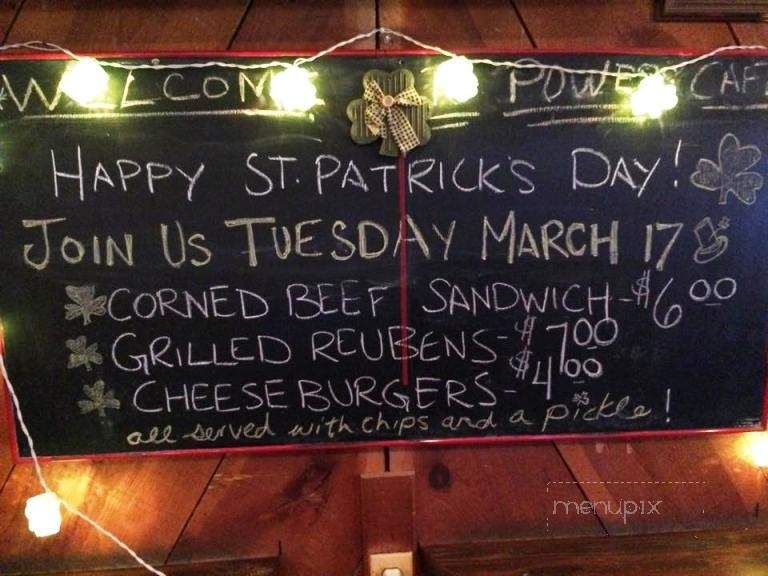 WELCOME POWERS CAFE
HAPPY ST. PATRICK'S DAY!
JOIN US TUESDAY MARCH 17
CORNED BEEF SANDWICH-$6.00
GRILLED REUBENS-$7.00
CHEESEBURGERS-$4.00
all served with chips and a pickle!
menupix